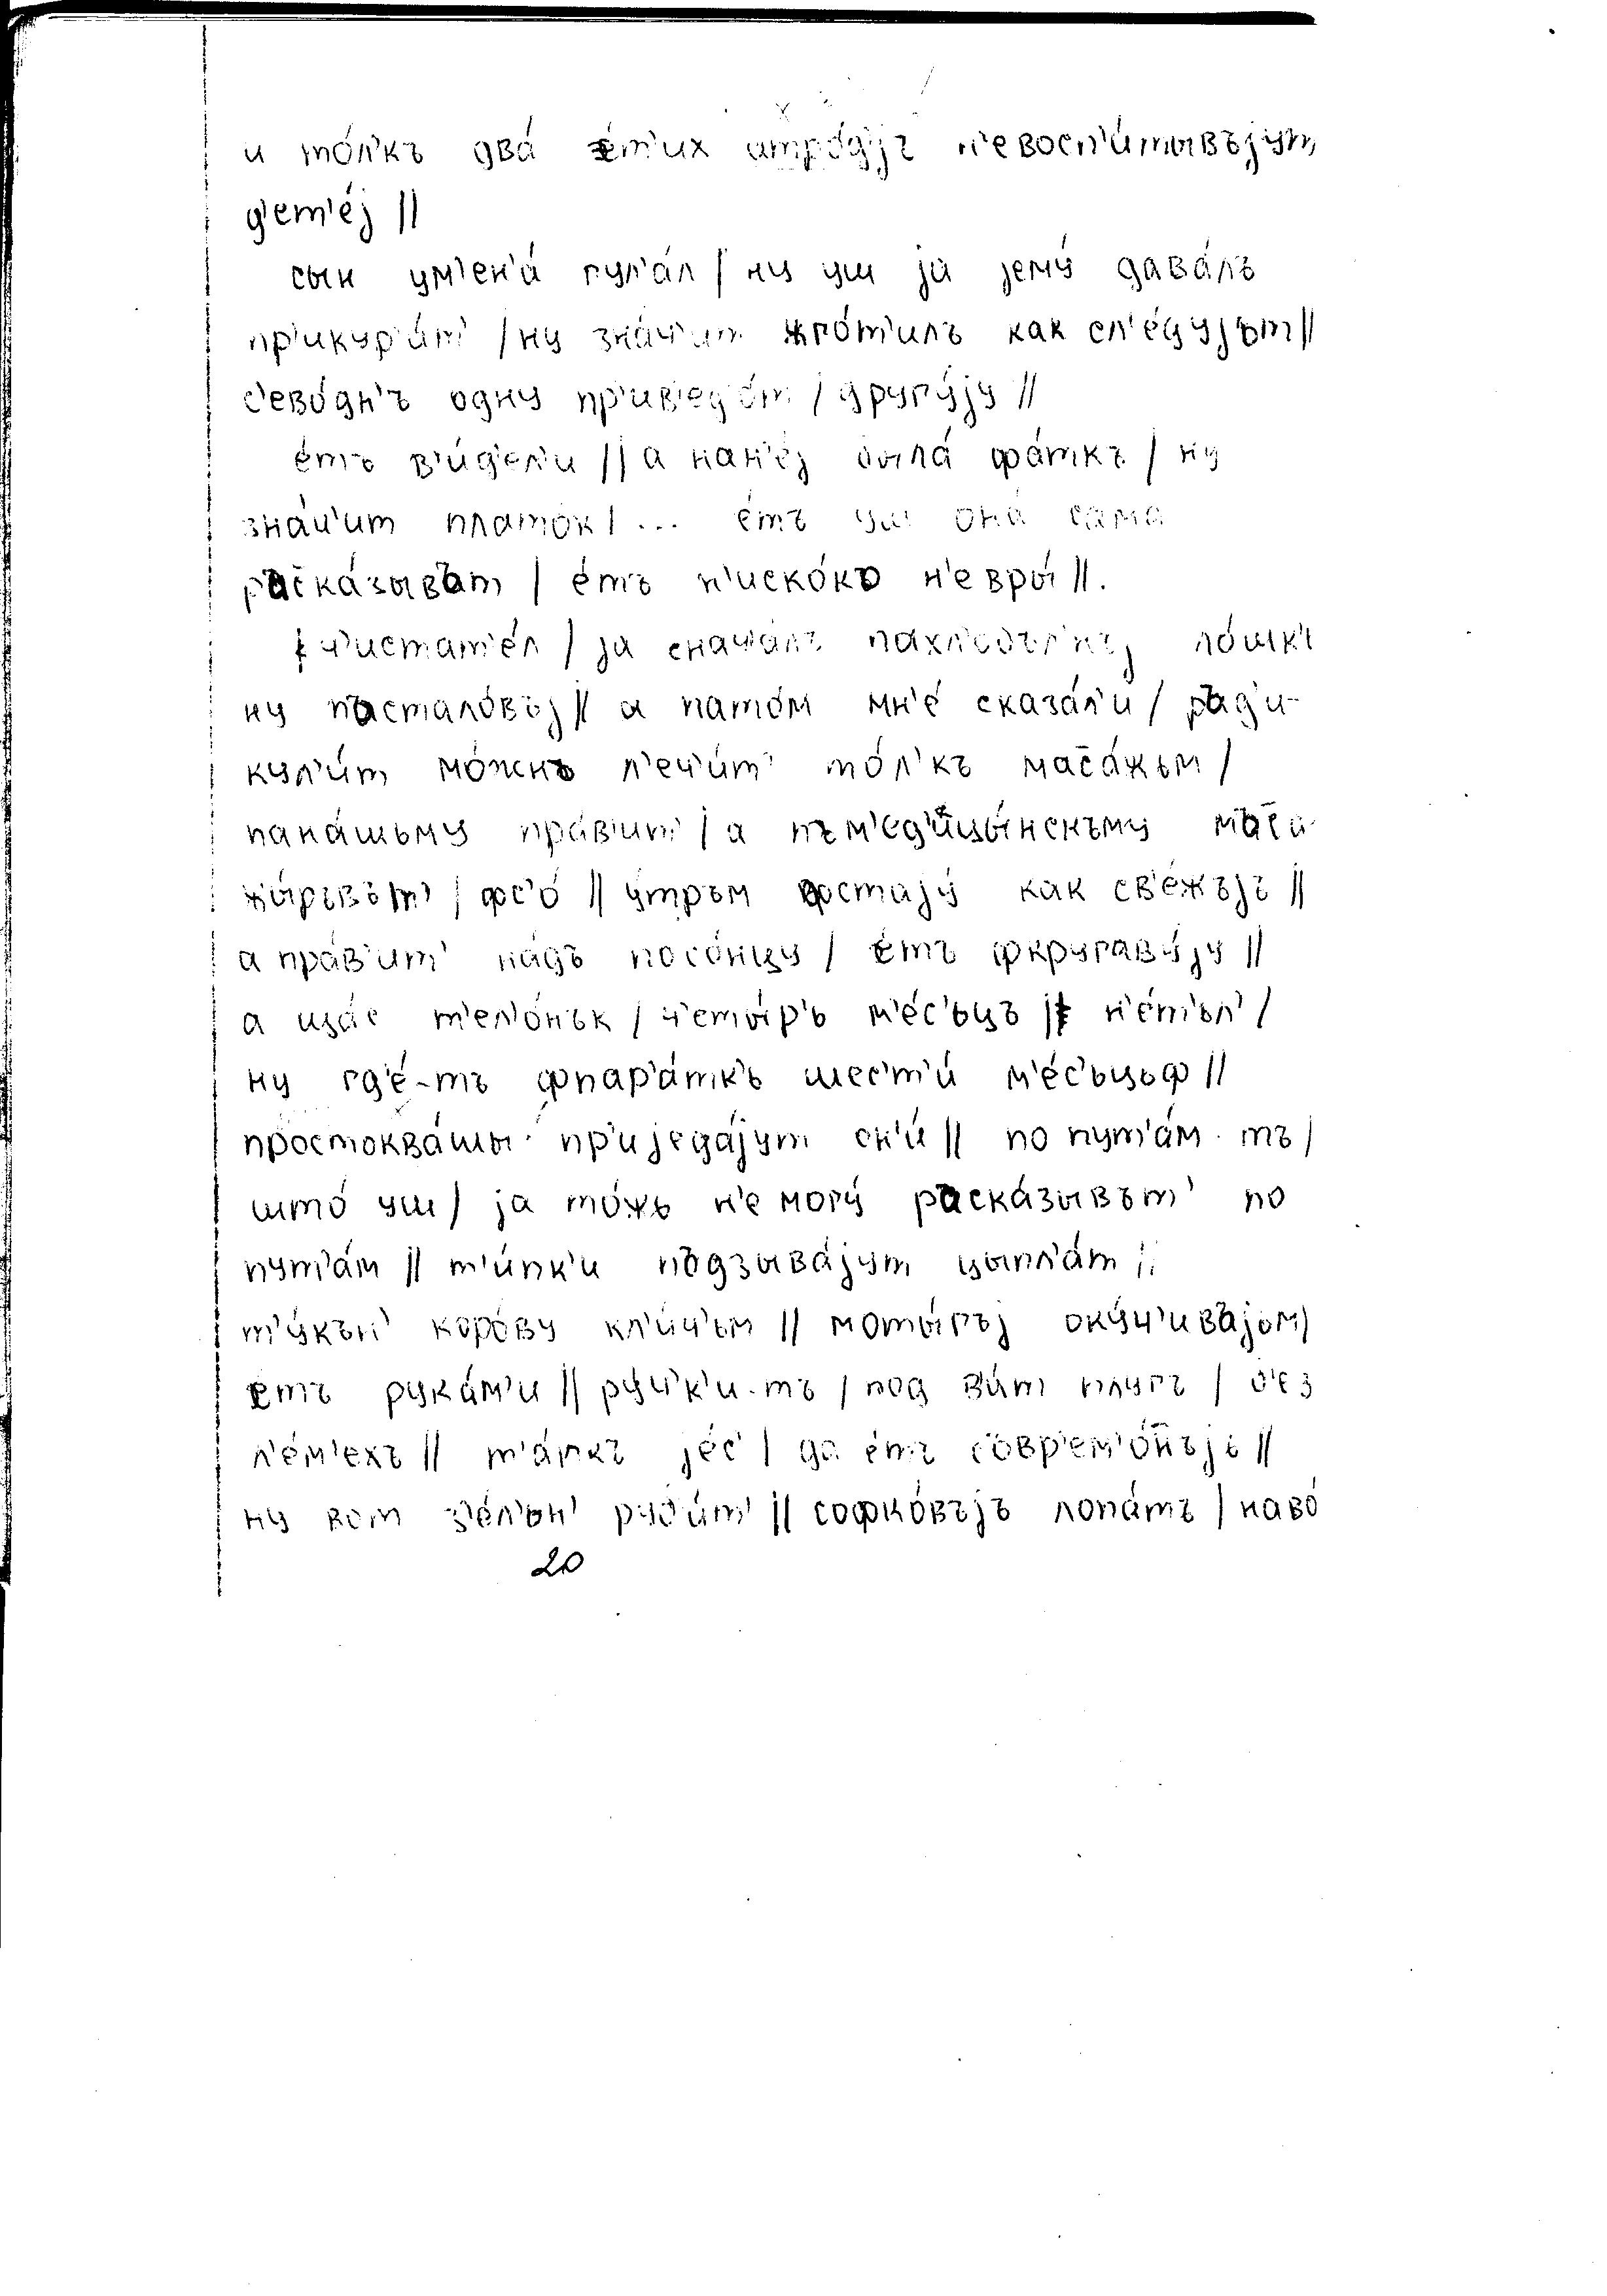 и то́л'къ два́ е́т'их атро́д'јъ н'евосп'и́тывъјут
д'ет'е́ј //
сын ум'ен'а́ гул'а́л / ну уш ја јему́ дава́лъ
пр'икур'и́т' / ну зна́ч'ит кро́т'илъ как сл'е́дујът //
с'ево́дн'ъ одну пр'ив'ед'о́т / другу́ју //
е́тъ в'и́д'ел'и // а нан'е́ј была́ фа́ткъ / ну
зна́ч'ит плато́к / ... е́тъ уш она́ сама
раска́зывът / е́тъ н'иско́къ н'евры́ //.
ч'истат'е́л / ја снача́лъ пахл'объл'нъј ло́шкъ
ну пъстало́въј // а пато́м мн'е́ сказа́л'и / рад'и-
кул'и́т мо́жнъ л'еч'и́т' то́л'къ маса́жъм /
пана́шъму пра́в'ит' / а пъм'ед'ицы́нскъму маса
жы́ръвът' / фс'о́ // у́тръм фстају́ как св'е́жъјъ //
а пра́в'ит' на́дъ посо́нцу / е́тъ фкругаву́ју //
а ща́с т'ел'о́нък / ч'еты́р'ь м'е́с'ъцъ / н'е́тъл' /
ну гд'е́-тъ фпар'а́дк'ь шес'т'и́ м'е́с'ъцъф //
простоква́шы пр'иједа́јут он'и́ // по пут'а́м-тъ /
што́ уш / ја то́жъ н'е могу́ раска́зывът' по
пут'а́м // т'и́пк'и подзыва́јут цыпл'а́т //
т'у́кън' коро́ву кл'и́ч'ъм // моты́гъј оку́ч'ивајом /
е́тъ рука́м'и // ру́ч'к'и-тъ / под ви́т плугъ / б'ез
л'е́м'ехъ // т'а́пкъ је́с' / да е́тъ совр'ем'о́нъјъ //
ну вот з'е́л'ън' руб'и́т' // софко́въјъ лопа́тъ / наво́
20